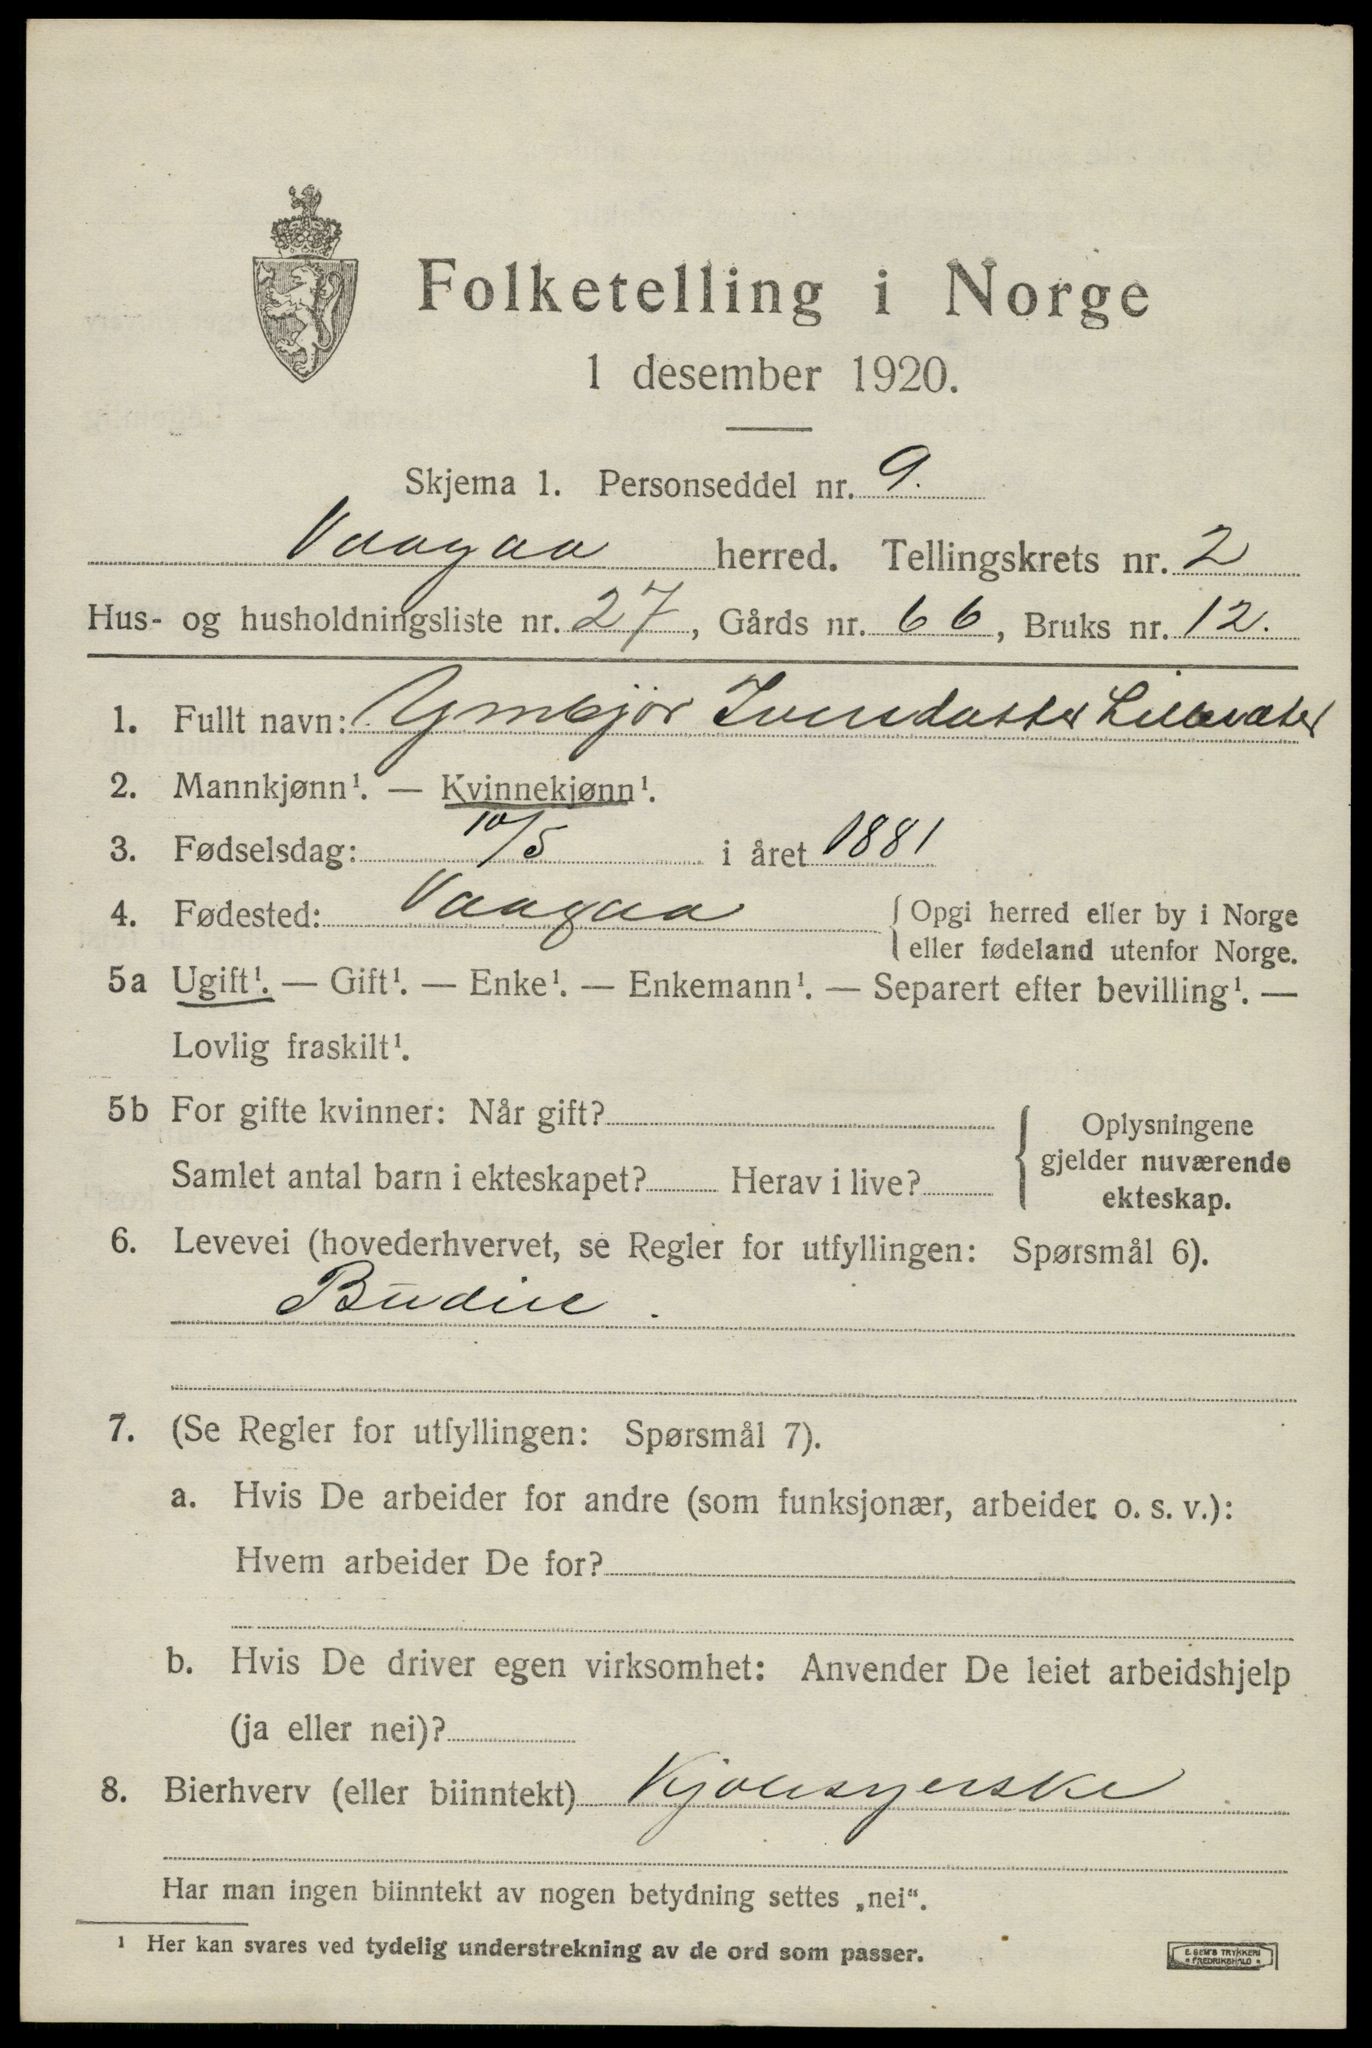 Folketelling i Norge
1 desember 1920.
Skjema 1. Personseddel nr. 9.
Vaagaa herred. Tellingskrets nr. 2
Hus- og husholdningsliste nr. 27, Gårds nr. 66, Bruks nr. 12.
1. Fullt navn: Ymbjør Iversdatter
2. Mannkjønn¹. — Kvinnekjønn¹.
3. Fødselsdag: 10/5 i året 1881
4. Fødested: Vaagaa { Opgi herred eller by i Norge
eller fødeland utenfor Norge.
5a Ugift¹. — Gift¹. — Enke¹. — Enkemann¹. — Separert efter bevilling¹. —
Lovlig fraskilt¹.
5b For gifte kvinner: Når gift?
Samlet antal barn i ekteskapet? Herav i live?
{ Oplysningene
gjelder nuværende
ekteskap.
6. Levevei (hovederhvervet, se Regler for utfyllingen: Spørsmål 6).
Budeie.
7. (Se Regler for utfyllingen: Spørsmål 7).
a. Hvis De arbeider for andre (som funksjonær, arbeider o. s. v.):
Hvem arbeider De for?
b. Hvis De driver egen virksomhet: Anvender De leiet arbeidshjelp
(ja eller nei)?
8. Bierhverv (eller biinntekt) Kjolesyerske
Har man ingen biinntekt av nogen betydning settes „nei“.
¹ Her kan svares ved tydelig understrekning av de ord som passer.
E. SEM'S TRYKKERI
* FREDRIKSHALD *